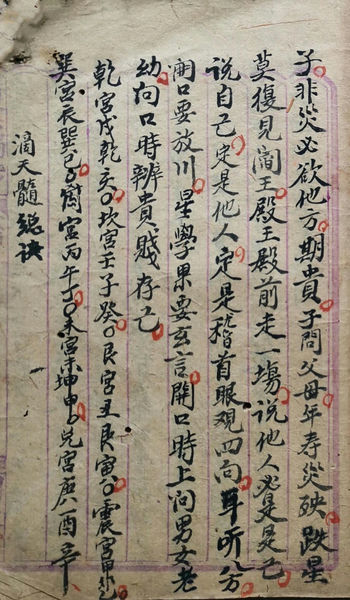 子非災必欲他方期貴子問父母年寿災殃跌星
莫復見阎王殿王殿前走一場说他人必是是己
说自己定是他人定是稽首眼观四向耳听八方
開口要放川星學果要玄言開口時上问男女老
幼向口時辨貴賤存己
乾宮戌乾亥坎宮壬子癸艮宮丑艮寅震宮甲卯乙
巽宮辰巽巳離宮丙午丁未宮未坤申兑宮庚酉辛
滴天髓總诀